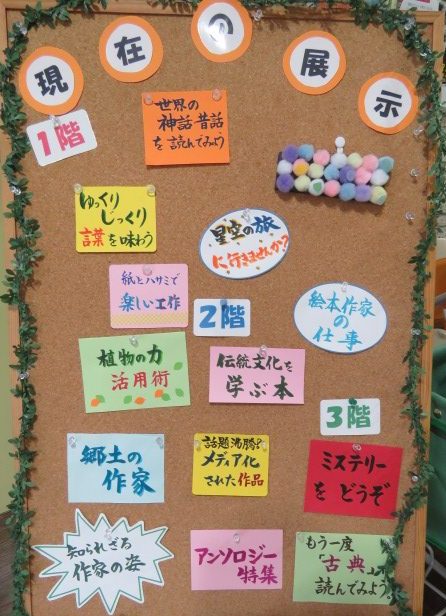 現在の展示
1階
世界の
神話・昔話
を読んでみよう
ゆっくり
じっくり
言葉を味わう
星空の旅
に行きませんか?
紙とハサミで
楽しい工作
2階
絵本作家
の
仕事
植物の力
活用術
伝統文化を
学ぶ本
3階
郷土の
作家
話題沸騰!?
メディア化
された作品
ミステリー
を どうぞ
知られざる
作家の姿
アンソロジー
特集
もう一度
「古典」を
読んでみよう。